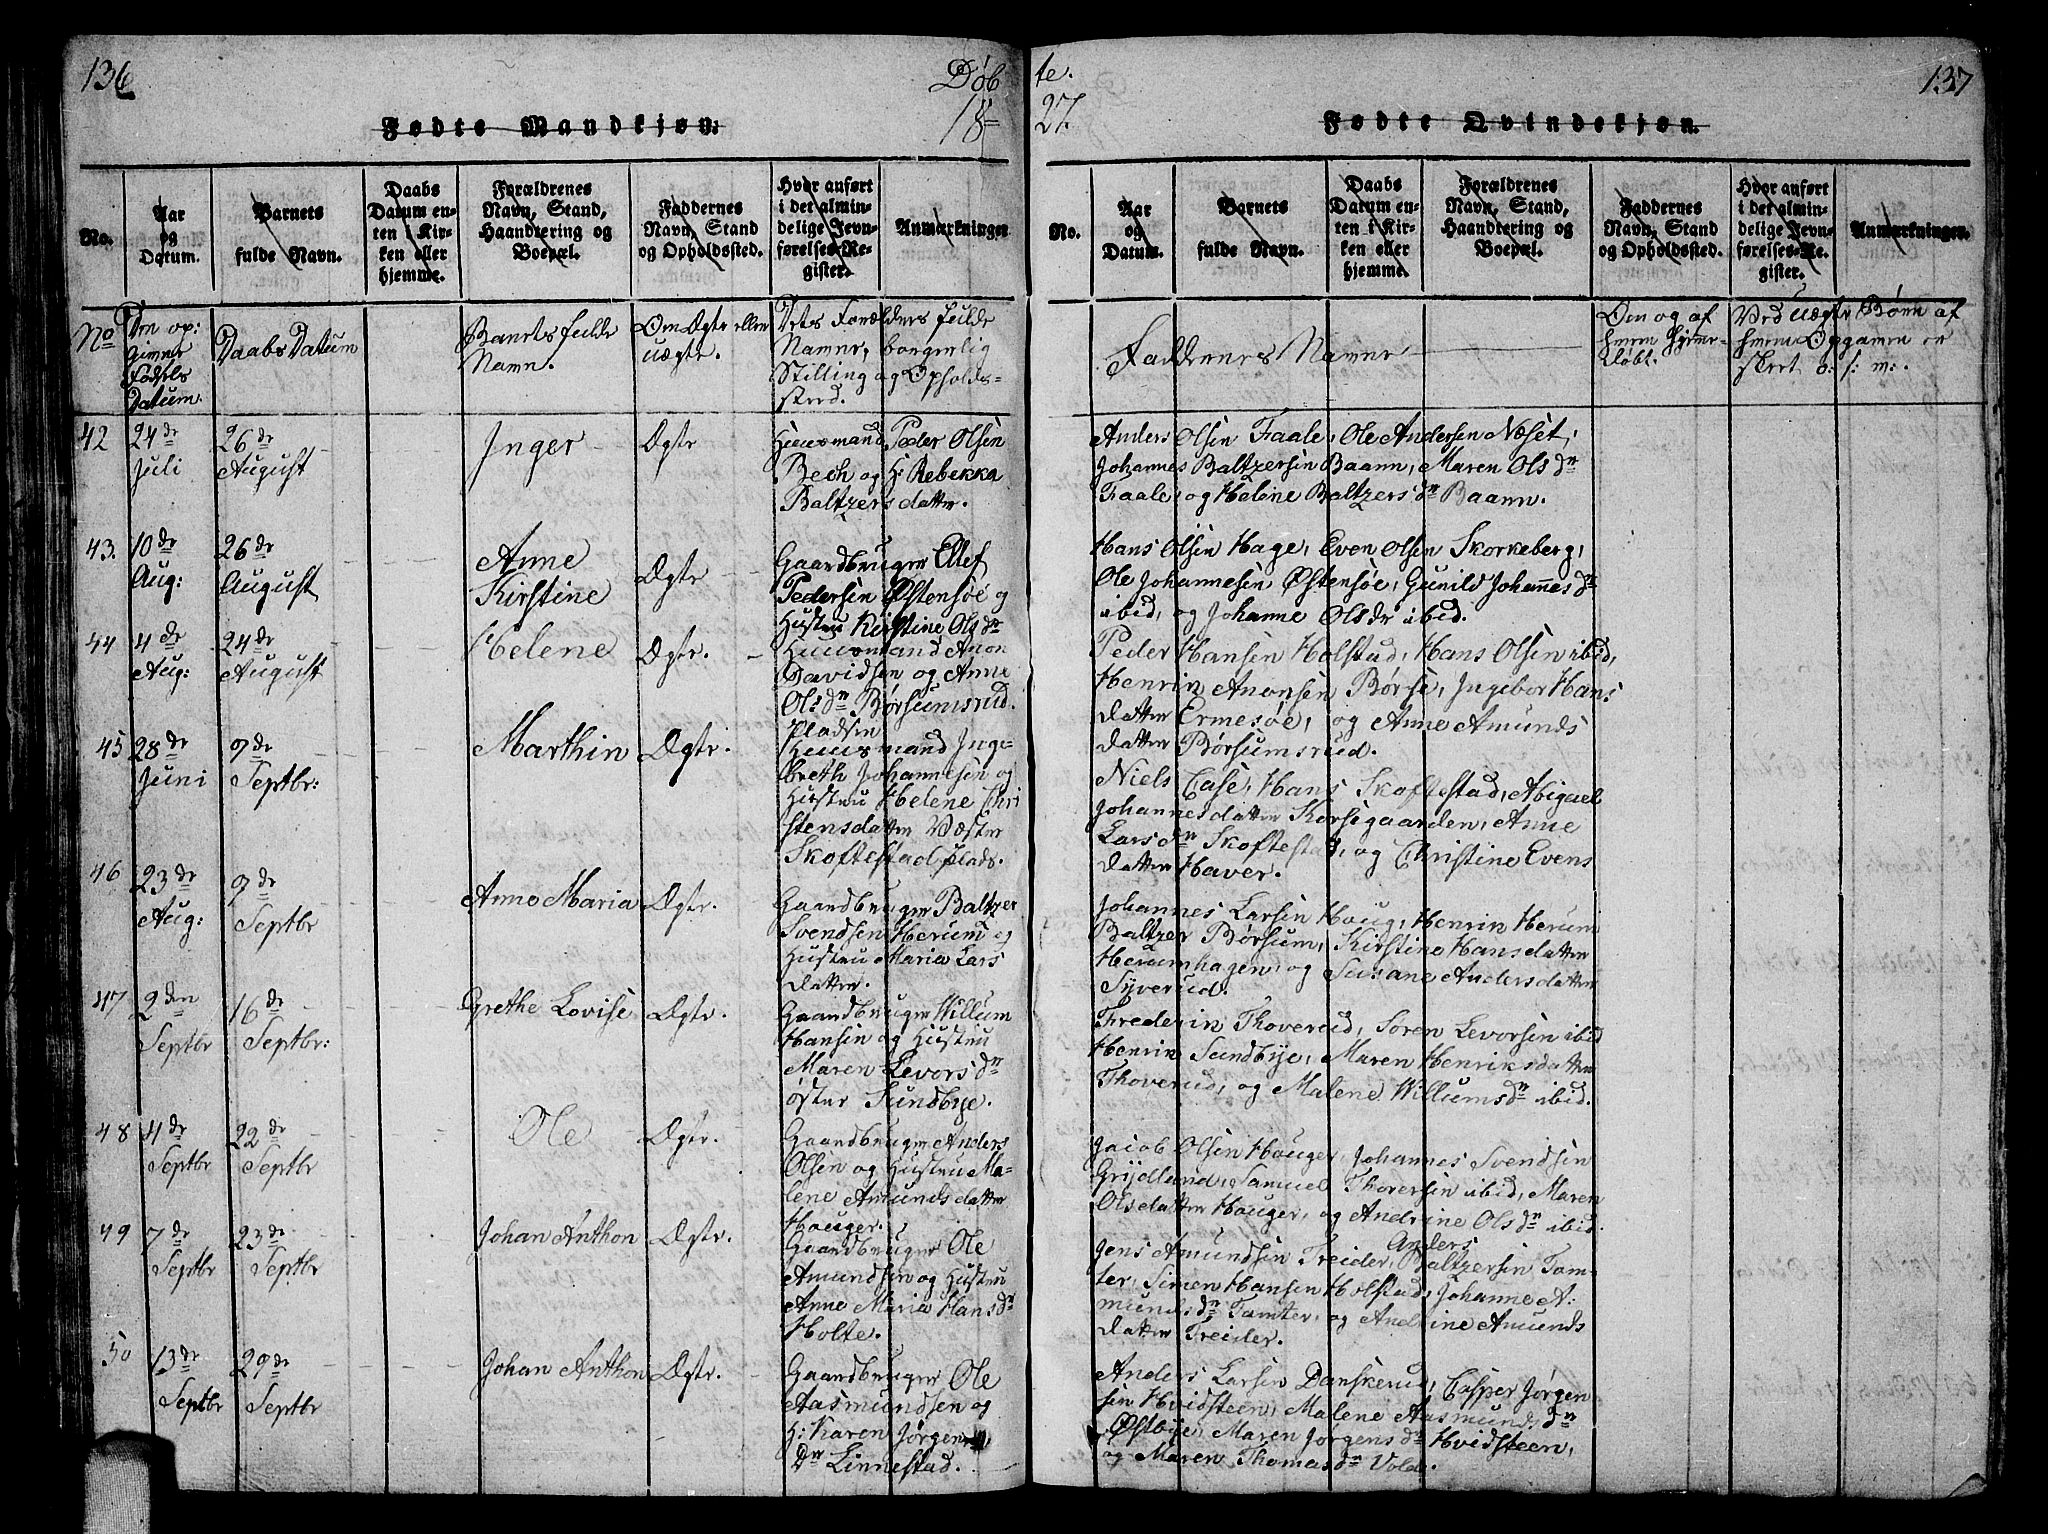 136
Døb
18
Fødte Mandkjøn.
No.
Aar og Datum.
Barnets fulde Navn.
Daabs Datum enten i Kirken eller hjemme.
Forældrenes Navn, Stand, Haandtering og Boepæl.
Faddernes Navn, Stand og Opholdssted.
Hvor anført i det almindelige Jevnførelses-Register.
Anmærkninger
No
Den op:
givne
Fødsels
Datum.
Daabs Datum
Barnets fulde
Navn.
Om Ægte eller
uægte.
Dets Forældres fulde
Navne, borgerlig
Stilling og Opholds-
sted.
42
24de
Juli
26de
August
Inger
Ægte
Huusmand Peder Olsen
Bech og H: Rebekka
Baltzersdatter.
43.
10de
Aug:
26de
August
Anne
Kirstine
Ægte
Gaardbruger Ellef
Pedersen Østensøe og
Hustru Kirstine Olsdr
44
4de
Aug:
24de
August
Helene
Ægte.
Huusmand Anon
Davidsen og Anne
Olsdr Børsumsrud.
Pladsen
45
28de
Juni
9de
Septbr:
Marthin
Ægte.
Huusmand Inge-
breth Johannesen og
Hustru Helene Chri
stensdatter Væster
Skoftestad plads.
46
23de
Aug:
9de
Septbr
Anne Maria
Ægte.
Gaardbruger Baltzer
Svendsen Herum og
Hustru Maria Lars
datter.
47
2den
Septbr
16de
Septbr:
Grethe Lovise
Ægte.
Gaardbruger Willum
Hansen og Hustru
Maren Levorsdr
øster Sundbye.
48
4de
Septbr
22de
Septbr
Ole
Ægte.
Gaardbruger Anders
Olsen og Hustru Ma-
lene Amundsdatter
Houger.
49
7de
Septbr
23de
Septbr
Johan Anthon
Ægte.
Gaardbruger Ole
Amundsen og Hustru
Anne Maria Hansdr
Holte.
50
13de
Septbr
29de
Septbr
Johan Anthon
Ægte.
Gaardbruger Ole
Aasmundsen og
H: Karen Jørgen
dr Linnestad.
te.
27.
137
Fødte Qvindekjøn.
No.
Aar og Datum.
Barnets fulde Navn.
Daabs Datum enten i Kirken eller hjemme.
Forældrenes Navn, Stand, Haandtering og Boepæl.
Faddernes Navn, Stand og Opholdssted.
Hvor anført i det almindelige Jevnførelses-Register.
Anmærkninger.
Faddernes Navne
Om og af
hvem hjemme-
døbt.
Ved uægte Børn af
hvem Opgaven er
skeet o: s: m:.
Anders Olsen Faale, Ole Andersen Næset,
Johannes Baltzersen Baann, Maren Olsdr
Faale, og Helene Baltzersdr Baann.
Hans Olsen Hage, Even Olsen Skorkeberg,
Ole Johannesen Østensøe, Gunild Johannesdr
ibid, og Johanne Olsdr ibid.
Peder Hansen Holstad, Hans Olsen ibid,
Henrik Anonsen Børse, Ingebor Hans
datter Ermesøe, og Anne Amunds
datter Børsumsrud.
Niels Case, Hans Skoftestad, Abigael
Johannesdatter Korsegaarden, Anne
Larsdr Skoftestad, og Christine Evens
datter Haver.
Johannes Larsen Houg, Henrik Herum
Baltzer Børsum, Kirstine Hansdatter
Herumhagen, og Susane Andersdatter
Syverud.
Frederik Thoverud, Søren Levorsen ibid
Henrik Sundbye, Maren Henriksdatter
Thoverud, og Malene Willumsdr ibid.
Jacob Olsen Houger, Johannes Svendsen
Grydland, Samuel Thoresen ibid, Maren
Olsdatter Houger, og Andrine Olsdr ibid.
Anders
Jens Amundsen Treider, Baltzersen Tom-
ter, Simen Hansen Holstad, Johanne A-
mundsdr Tomter, og Andrine Amunds
datter Treider.
Anders Larsen Danskerud, Casper Jørgen
sen Hvidsteen, Malene Aasmundsdr
Østbye, Maren Jørgensdr Hvidsteen,
og Maren Thomasdr Volde.